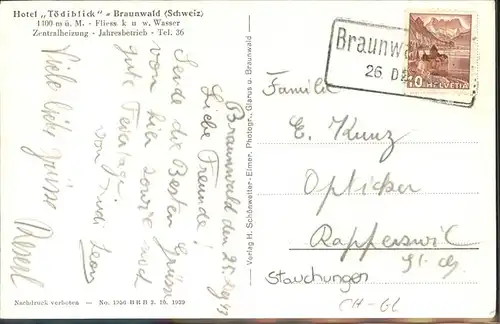 Hotel „Tödiblick" - Braunwald (Schweiz)
1400 m ü. M. - Fliess. k u w. Wasser
Zentralheizung - Jahresbetrieb - Tel. 36
Braunwald den 25.
Liebe Freunde!
Sende die Besten Grüsse
von hier sowie noch
gute Feiertage.
von Trudi Leon
Viele liebe Grüsse
Verlag H. Schönwetter-Elmer, Photogr., Glarus u. Braunwald
Braunwa
26 D
10
HELVETIA
Familie
E. Kunz
Optiker
Rapperswil
St. G.
Stauchungen
CH-GL
Nachdruck verboten - No. 1956 BRB 3. 10. 1939